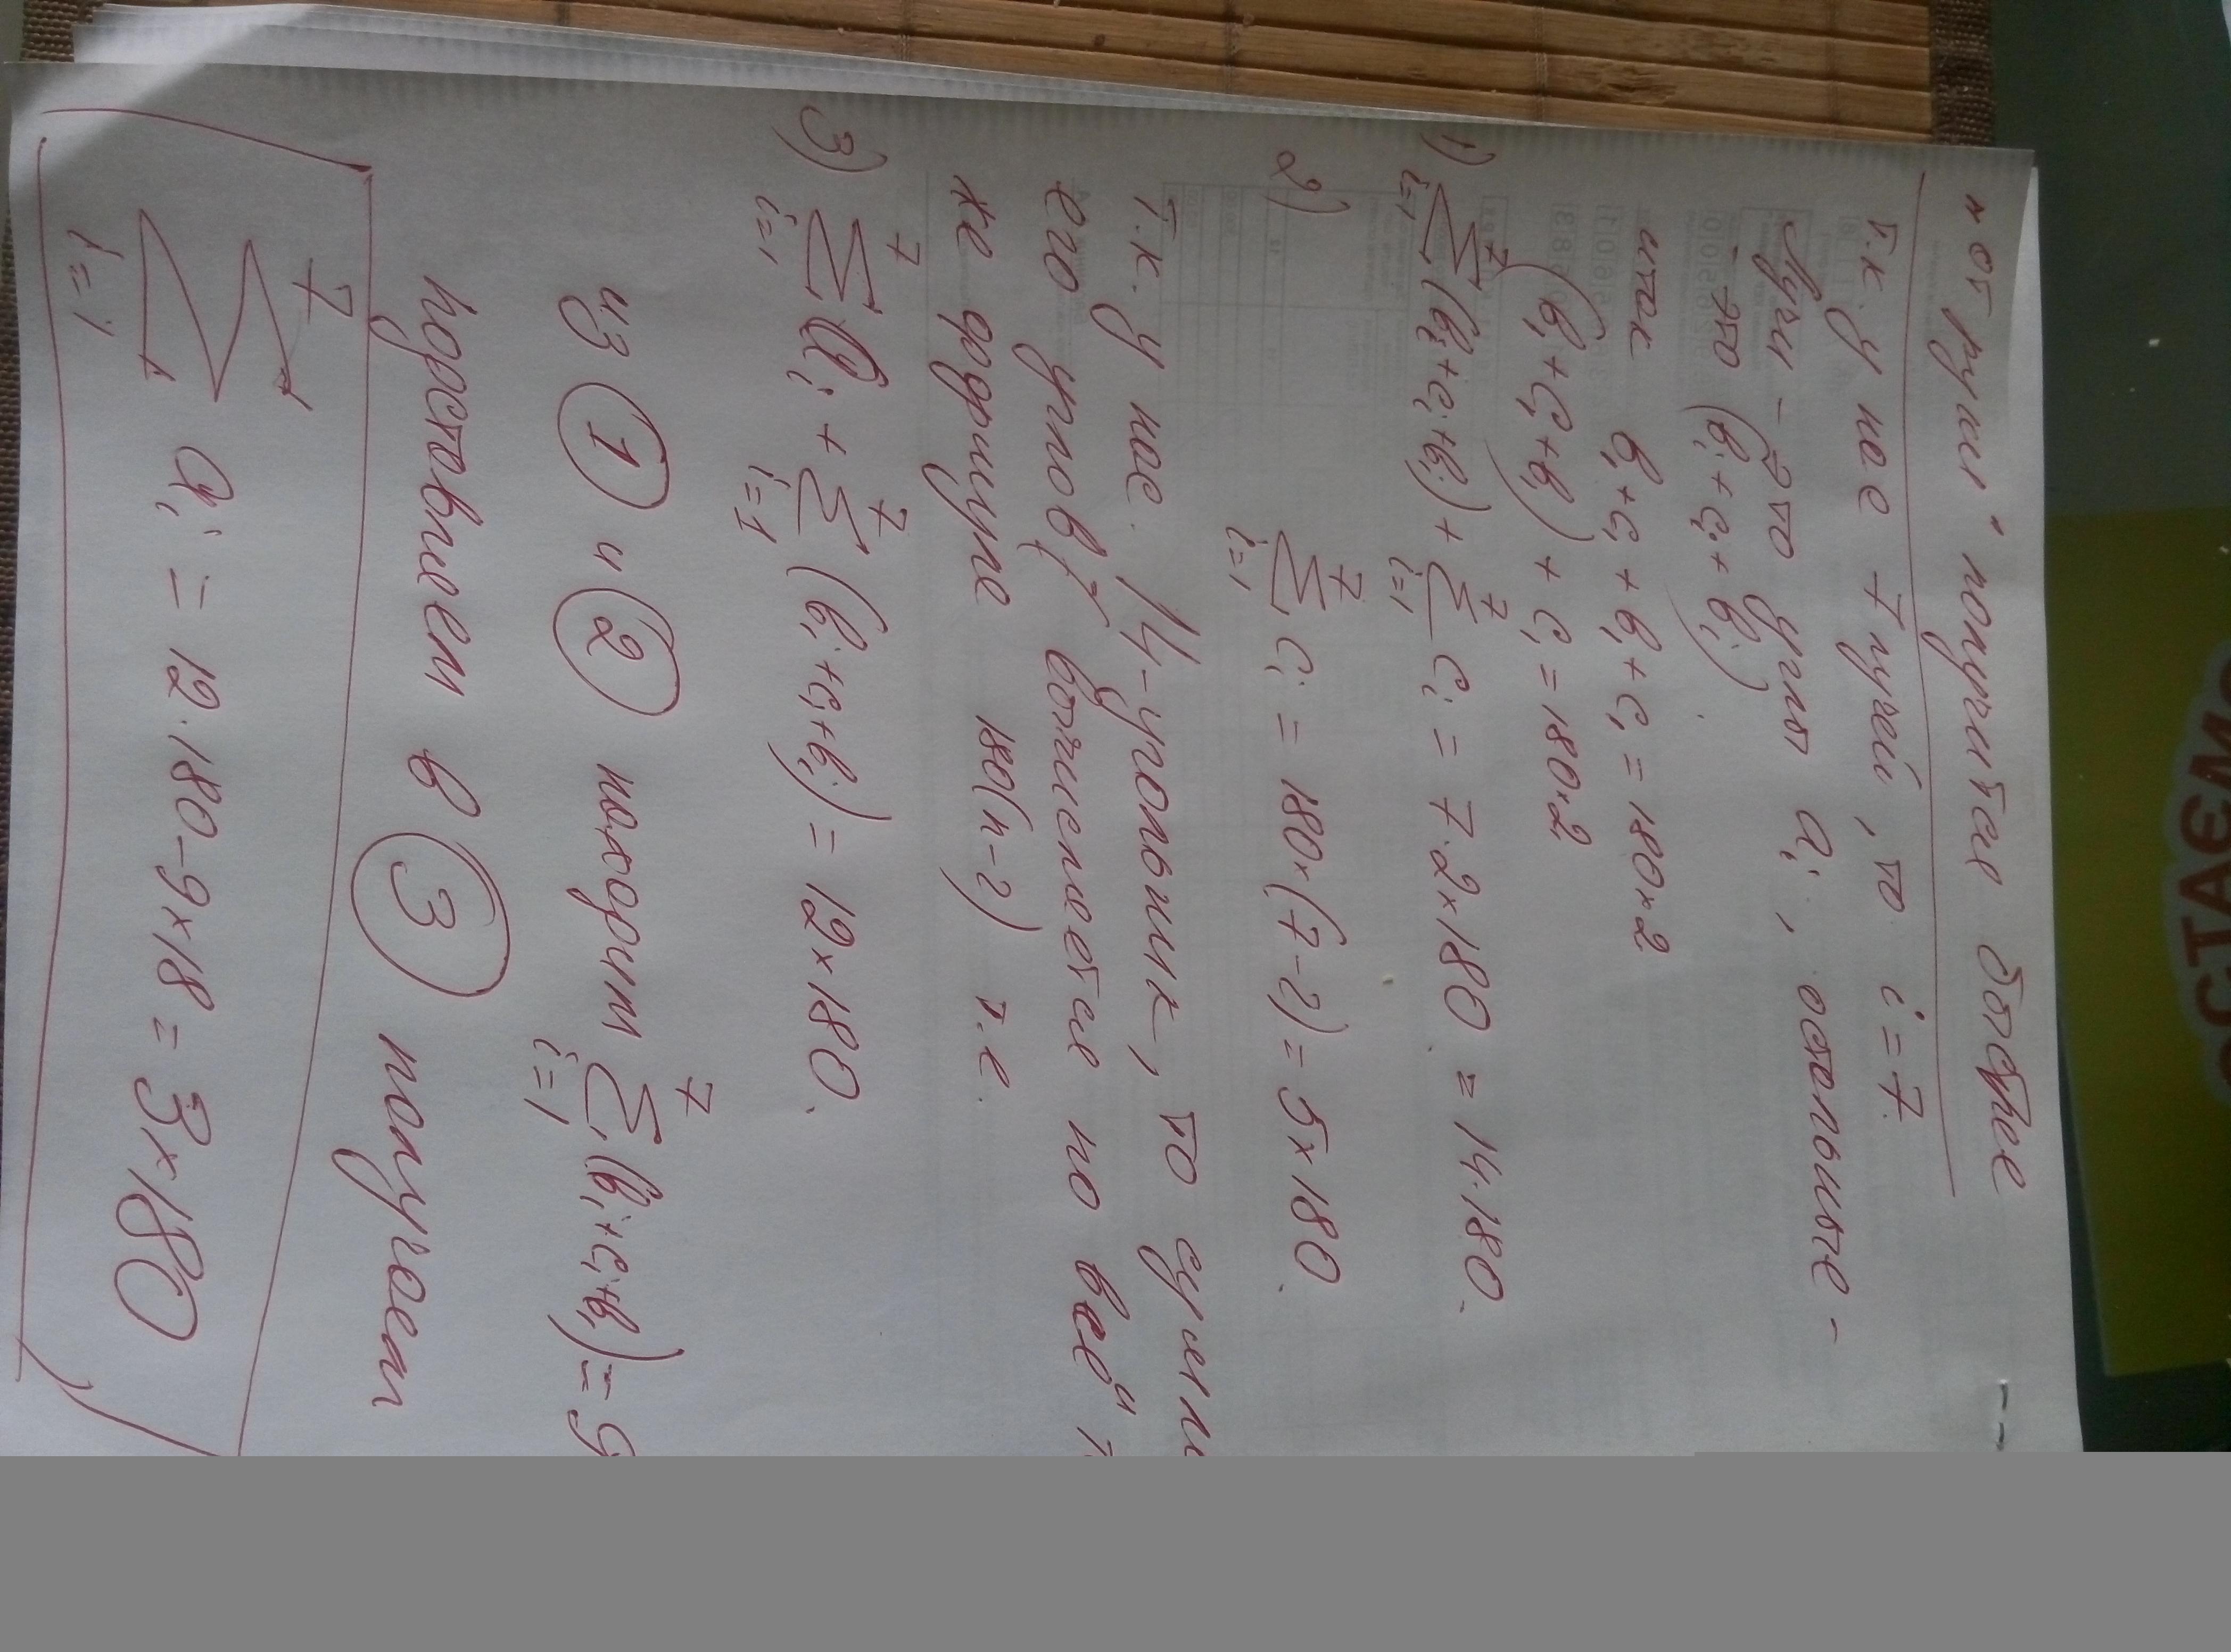 "от руки" получится быстрее
т.к. у нас 7 лучей, то i = 7.
Лучи - это углы aᵢ, остальные -
- это (bᵢ + cᵢ + bᵢ)
итак bᵢ + cᵢ + bᵢ + cᵢ = 180×2
(bᵢ + cᵢ + bᵢ) + cᵢ = 180×2
1) 7 Σ i=1 (bᵢ + cᵢ + bᵢ) + 7 Σ i=1 cᵢ = 7·2×180 = 14·180.
2) 7 Σ i=1 cᵢ = 180×(7-2) = 5×180.
т.к. у нас 14-угольник, то сумма
его углов вычисляется по всей
же формуле 180(n-2) т.е.
3) 7 Σ i=1 aᵢ + 7 Σ i=1 (bᵢ + cᵢ + bᵢ) = 12×180.
из 1 и 2 находим 7 Σ i=1 (bᵢ + cᵢ + bᵢ) = 9
подставляем в 3 получаем
7 Σ i=1 aᵢ = 12·180-9×18 = 3×180
ОСТАЄМО